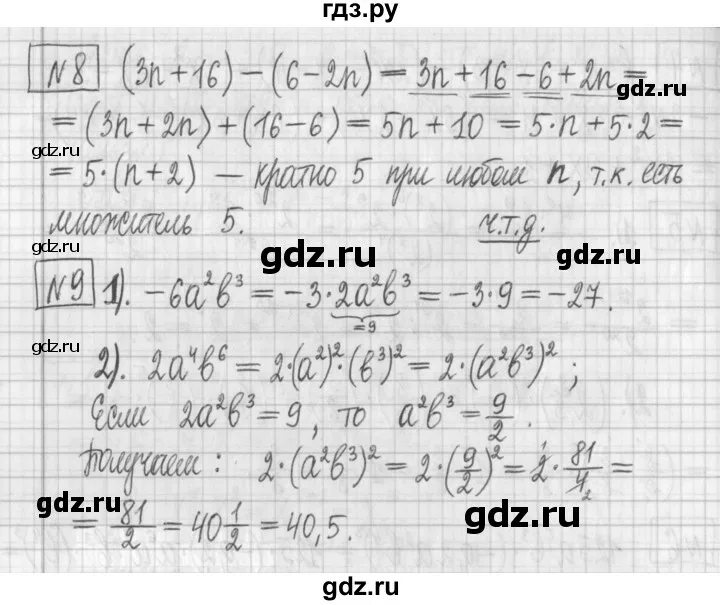 гдз.ру
№8 (3n+16)-(6-2n)=3n+16-6+2n=
gdz.ru
=(3n+2n)+(16-6)=5n+10=5·n+5·2=
gdz.ru
=5·(n+2) — кратно 5 при любом n, т.к. есть
множитель 5. ч.т.д.
gdz.ru
gdz.ru
№9 1). -6a²b³=-3·2a²b³=-3·9=-27.
=9
gdz.ru
2). 2a⁴b⁶=2·(a²)²·(b³)²=2·(a²b³)²;
Если 2a²b³=9, то a²b³=9/2.
Получаем: 2·(a²b³)²=2·(9/2)²=2·81/4=
gdz.ru
1
2
=81/2=40 1/2=40,5.
gdz.ru
gdz.ru